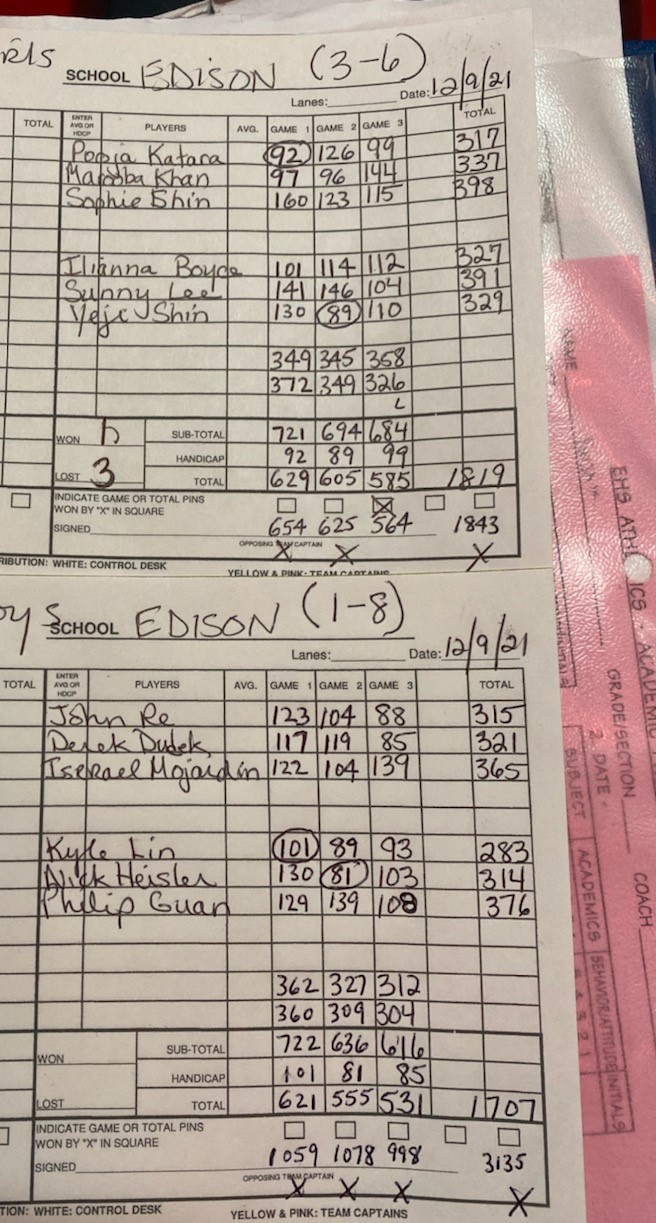 SCHOOL EDISON (3-6)
Lanes: Date: 12/9/21
TOTAL ENTER AVG OR HDCP PLAYERS AVG. GAME 1 GAME 2 GAME 3 TOTAL
Katara 92 126 99 317
Khan 97 96 144 337
Sophie Shin 160 123 115 398
Ilianna Boyce 101 114 112 327
Sunny Lee 141 146 104 391
Shin 130 89 110 329
349 345 358
372 349 326
WON SUB-TOTAL 721 694 684
HANDICAP 92 89 99
LOST 3 TOTAL 629 605 585 1819
INDICATE GAME OR TOTAL PINS
WON BY "X" IN SQUARE
SIGNED 654 625 564 1843
OPPOSING TEAM CAPTAIN
X X X
RIBUTION: WHITE: CONTROL DESK YELLOW & PINK: TEAM CAPTAINS
SCHOOL EDISON (1-8)
Lanes: Date: 12/9/21
TOTAL ENTER AVG OR HDCP PLAYERS AVG. GAME 1 GAME 2 GAME 3 TOTAL
John Re 123 104 88 315
Derek Dudek 117 119 85 321
122 104 139 365
Kyle Lin 101 89 93 283
Nick Heisler 130 81 103 314
Philip Guan 129 139 108 376
362 327 312
360 309 304
WON SUB-TOTAL 722 636 616
HANDICAP 101 81 85
LOST TOTAL 621 555 531 1707
INDICATE GAME OR TOTAL PINS
WON BY "X" IN SQUARE
SIGNED 1059 1078 998 3135
OPPOSING TEAM CAPTAIN
X X X X
TION: WHITE: CONTROL DESK YELLOW & PINK: TEAM CAPTAINS
NAME
EHS ACADEMIC
GRADE/SECTION COACH
2. DATE -
SUBJECT ACADEMICS BEHAVIOR/ATTITUDE INITIALS